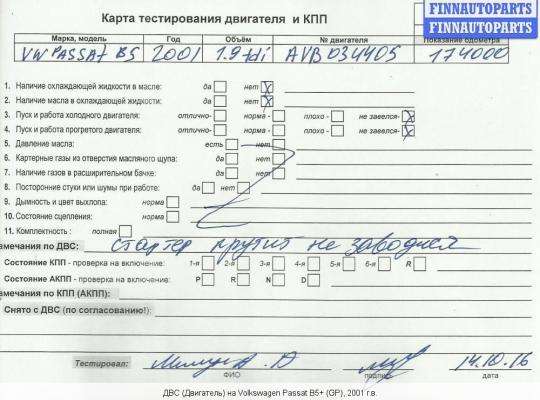 FINNAUTOPARTS
FINNAUTOPARTS
Карта тестирования двигателя и КПП
Марка, модель Год Объём № двигателя Показание одометра
VW PASSAT B5 2001 1.9 tdi AVB034405 174000
1. Наличие охлаждающей жидкости в масле: да нет
2. Наличие масла в охлаждающей жидкости: да нет
3. Пуск и работа холодного двигателя: отлично- норма - плохо - не завелся-
4. Пуск и работа прогретого двигателя: отлично- норма - плохо - не завелся-
5. Давление масла: есть нет
6. Картерные газы из отверстия масляного щупа: да нет
7. Наличие газов в расширительном бачке: да нет
8. Посторонние стуки или шумы при работе: да нет
9. Дымность и цвет выхлопа: норма
10. Состояние сцепления: норма
11. Комплектность : полная
мечания по ДВС: стартер крутит не заводится
Состояние КПП - проверка на включение: 1-я 2-я 3-я 4-я 5-я 6-я R
Состояние АКПП - проверка на включение: P R N D
мечания по КПП (АКПП):
Снято с ДВС (по согласованию!):
Тестировал: 14.10.16
ФИО подпись дата
ДВС (Двигатель) на Volkswagen Passat B5+ (GP), 2001 г.в.